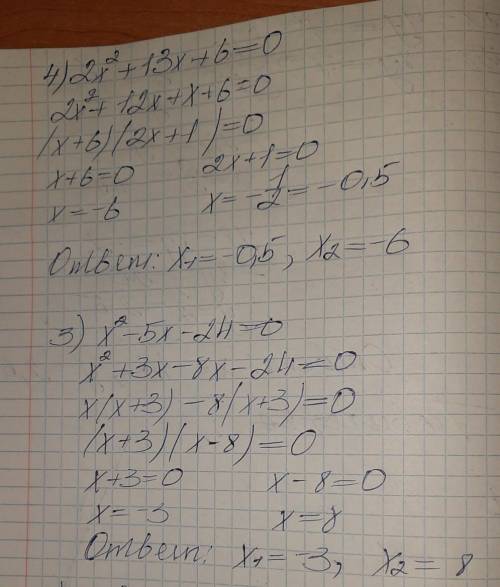 4) 2x² + 13x + 6 = 0
2x² + 12x + x + 6 = 0
(x + 6)(2x + 1) = 0
x + 6 = 0 2x + 1 = 0
x = -6 x = -1/2 = -0,5
Ответ: x₁ = -0,5, x₂ = -6
3) x² - 5x - 24 = 0
x² + 3x - 8x - 24 = 0
x(x + 3) - 8(x + 3) = 0
(x + 3)(x - 8) = 0
x + 3 = 0 x - 8 = 0
x = -3 x = 8
Ответ: x₁ = -3, x₂ = 8